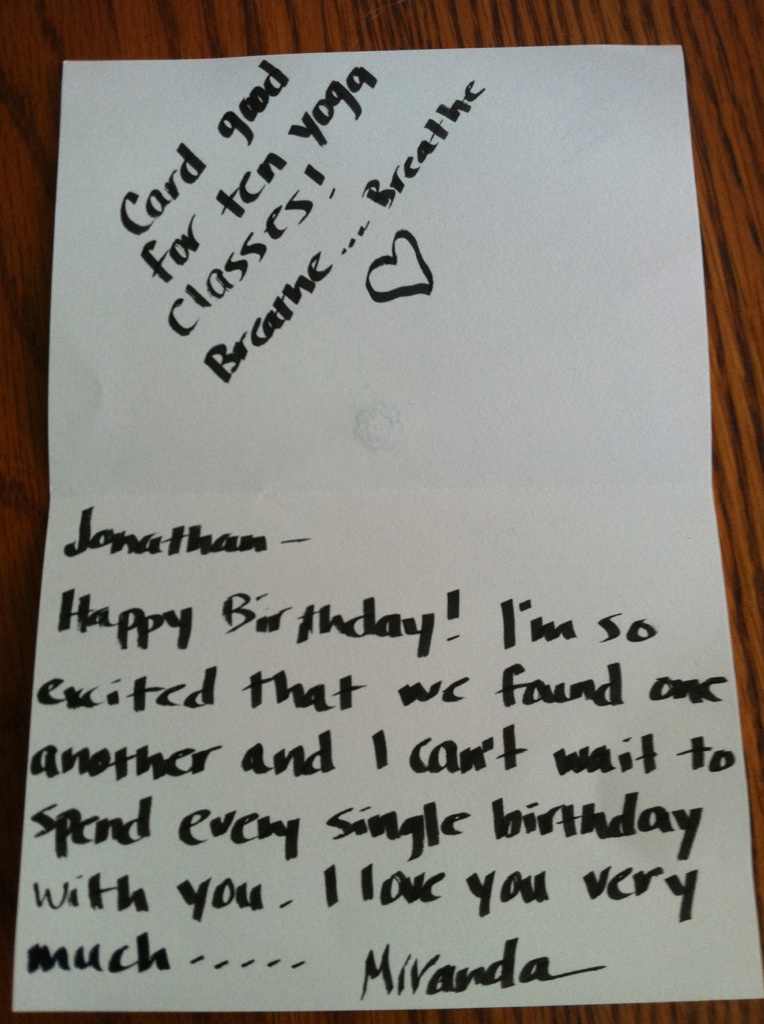 Card good
for ten yoga
Classes!
Breathe... Breathe
Jonathan -
Happy Birthday! I'm so
excited that we found one
another and I can't wait to
spend every single birthday
with you. I love you very
much..... Miranda